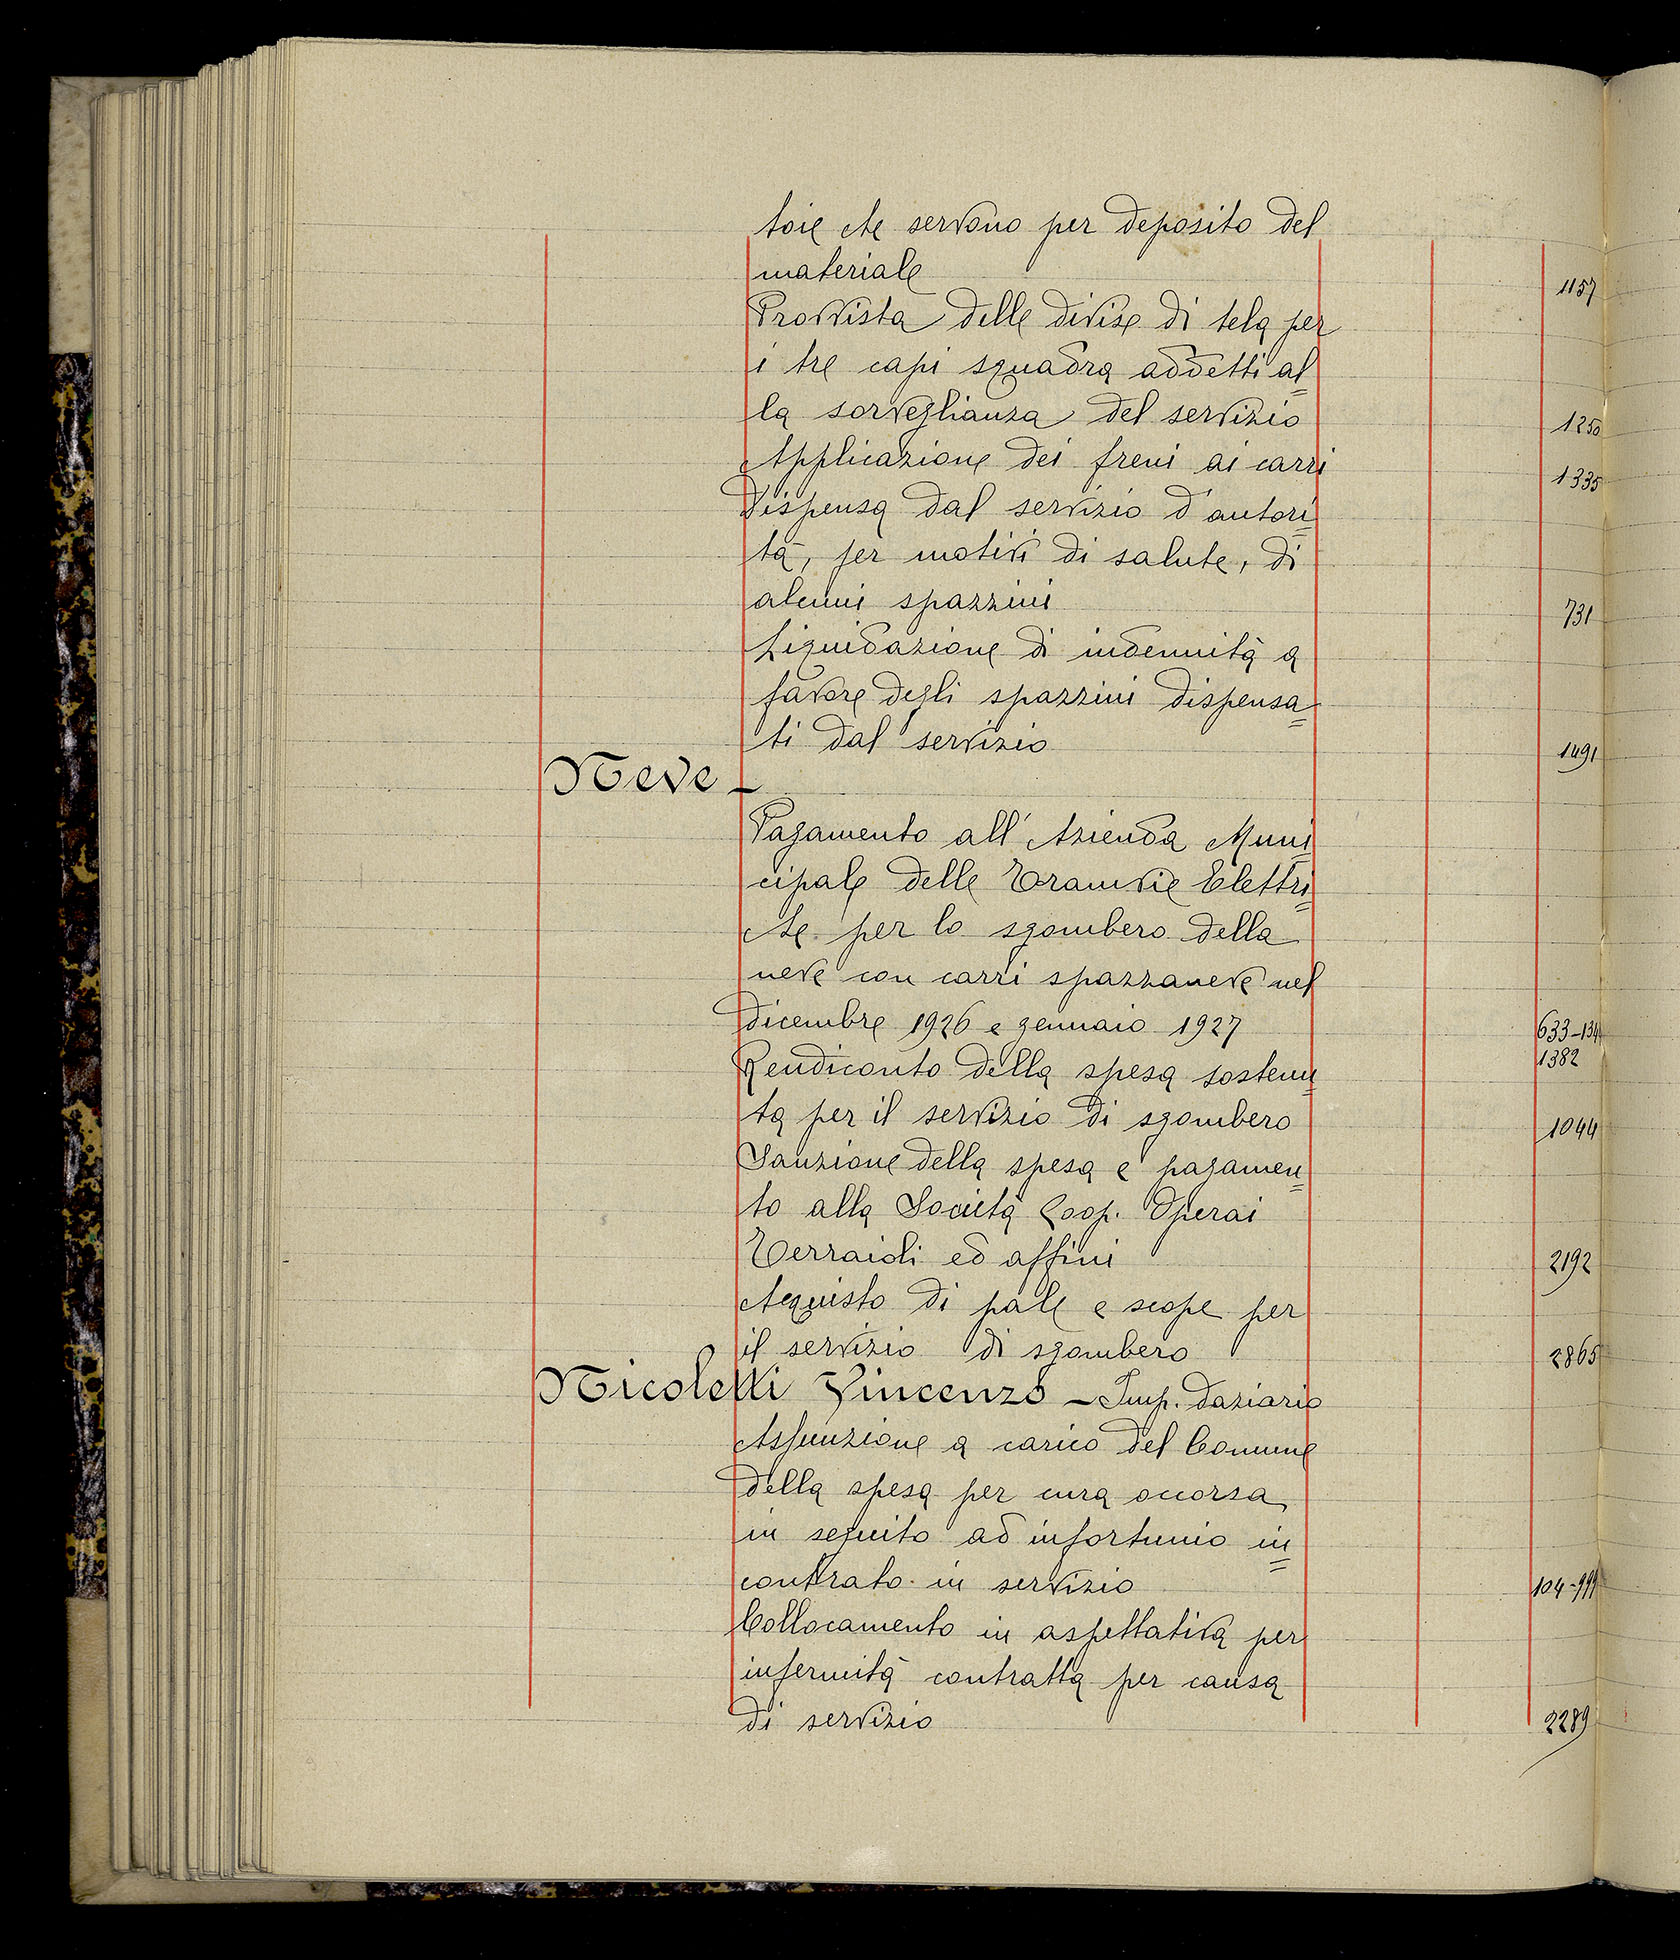 toie che servono per deposito del
materiale 1157
Provvista delle divise di tela per
i tre capi squadra addetti al=
la sorveglianza del servizio 1250
Applicazione dei freni ai carri 1335
Dispensa dal servizio d'autori=
tà, per motivi di salute, di
alcuni spazzini 731
Liquidazione di indennità a
favore degli spazzini dispensa=
ti dal servizio 1491
Neve -
Pagamento all'Azienda Muni=
cipale delle Tramvie Elettri=
che per lo sgombero della
neve con carri spazzaneve nel
dicembre 1926 e gennaio 1927 633-134
1382
Rendiconto della spesa sostenu=
ta per il servizio di sgombero 1044
Sanzione della spesa e pagamen=
to alla Società Coop. Operai
Terraioli ed affini 2192
Acquisto di pale e scope per
il servizio di sgombero 2865
Nicoletti Vincenzo - Imp. daziario
Assunzione a carico del Comune
della spesa per cura occorsa
in seguito ad infortunio in=
contrato in servizio 104-999
Collocamento in aspettativa per
infermità contratta per causa
di servizio 2289